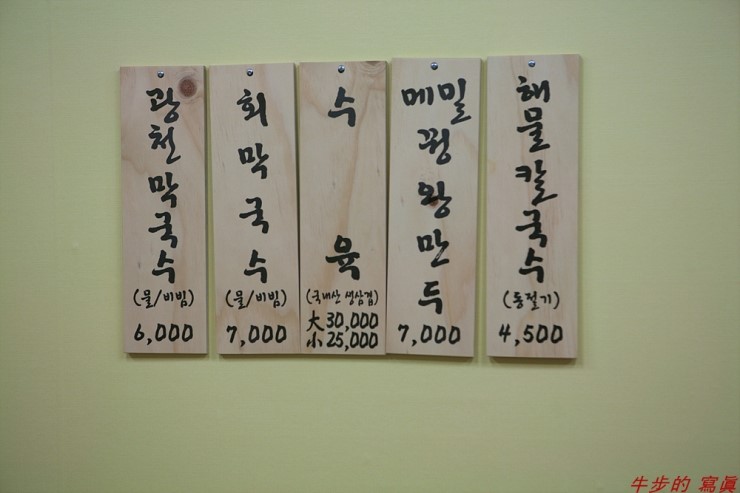 광천막국수
(물/비빔)
6,000
회막국수
(물/비빔)
7,000
수육
(국내산 생삼겹)
大 30,000
小 25,000
메밀
꿩왕만두
7,000
해물칼국수
(동절기)
4,500
牛步的 寫眞